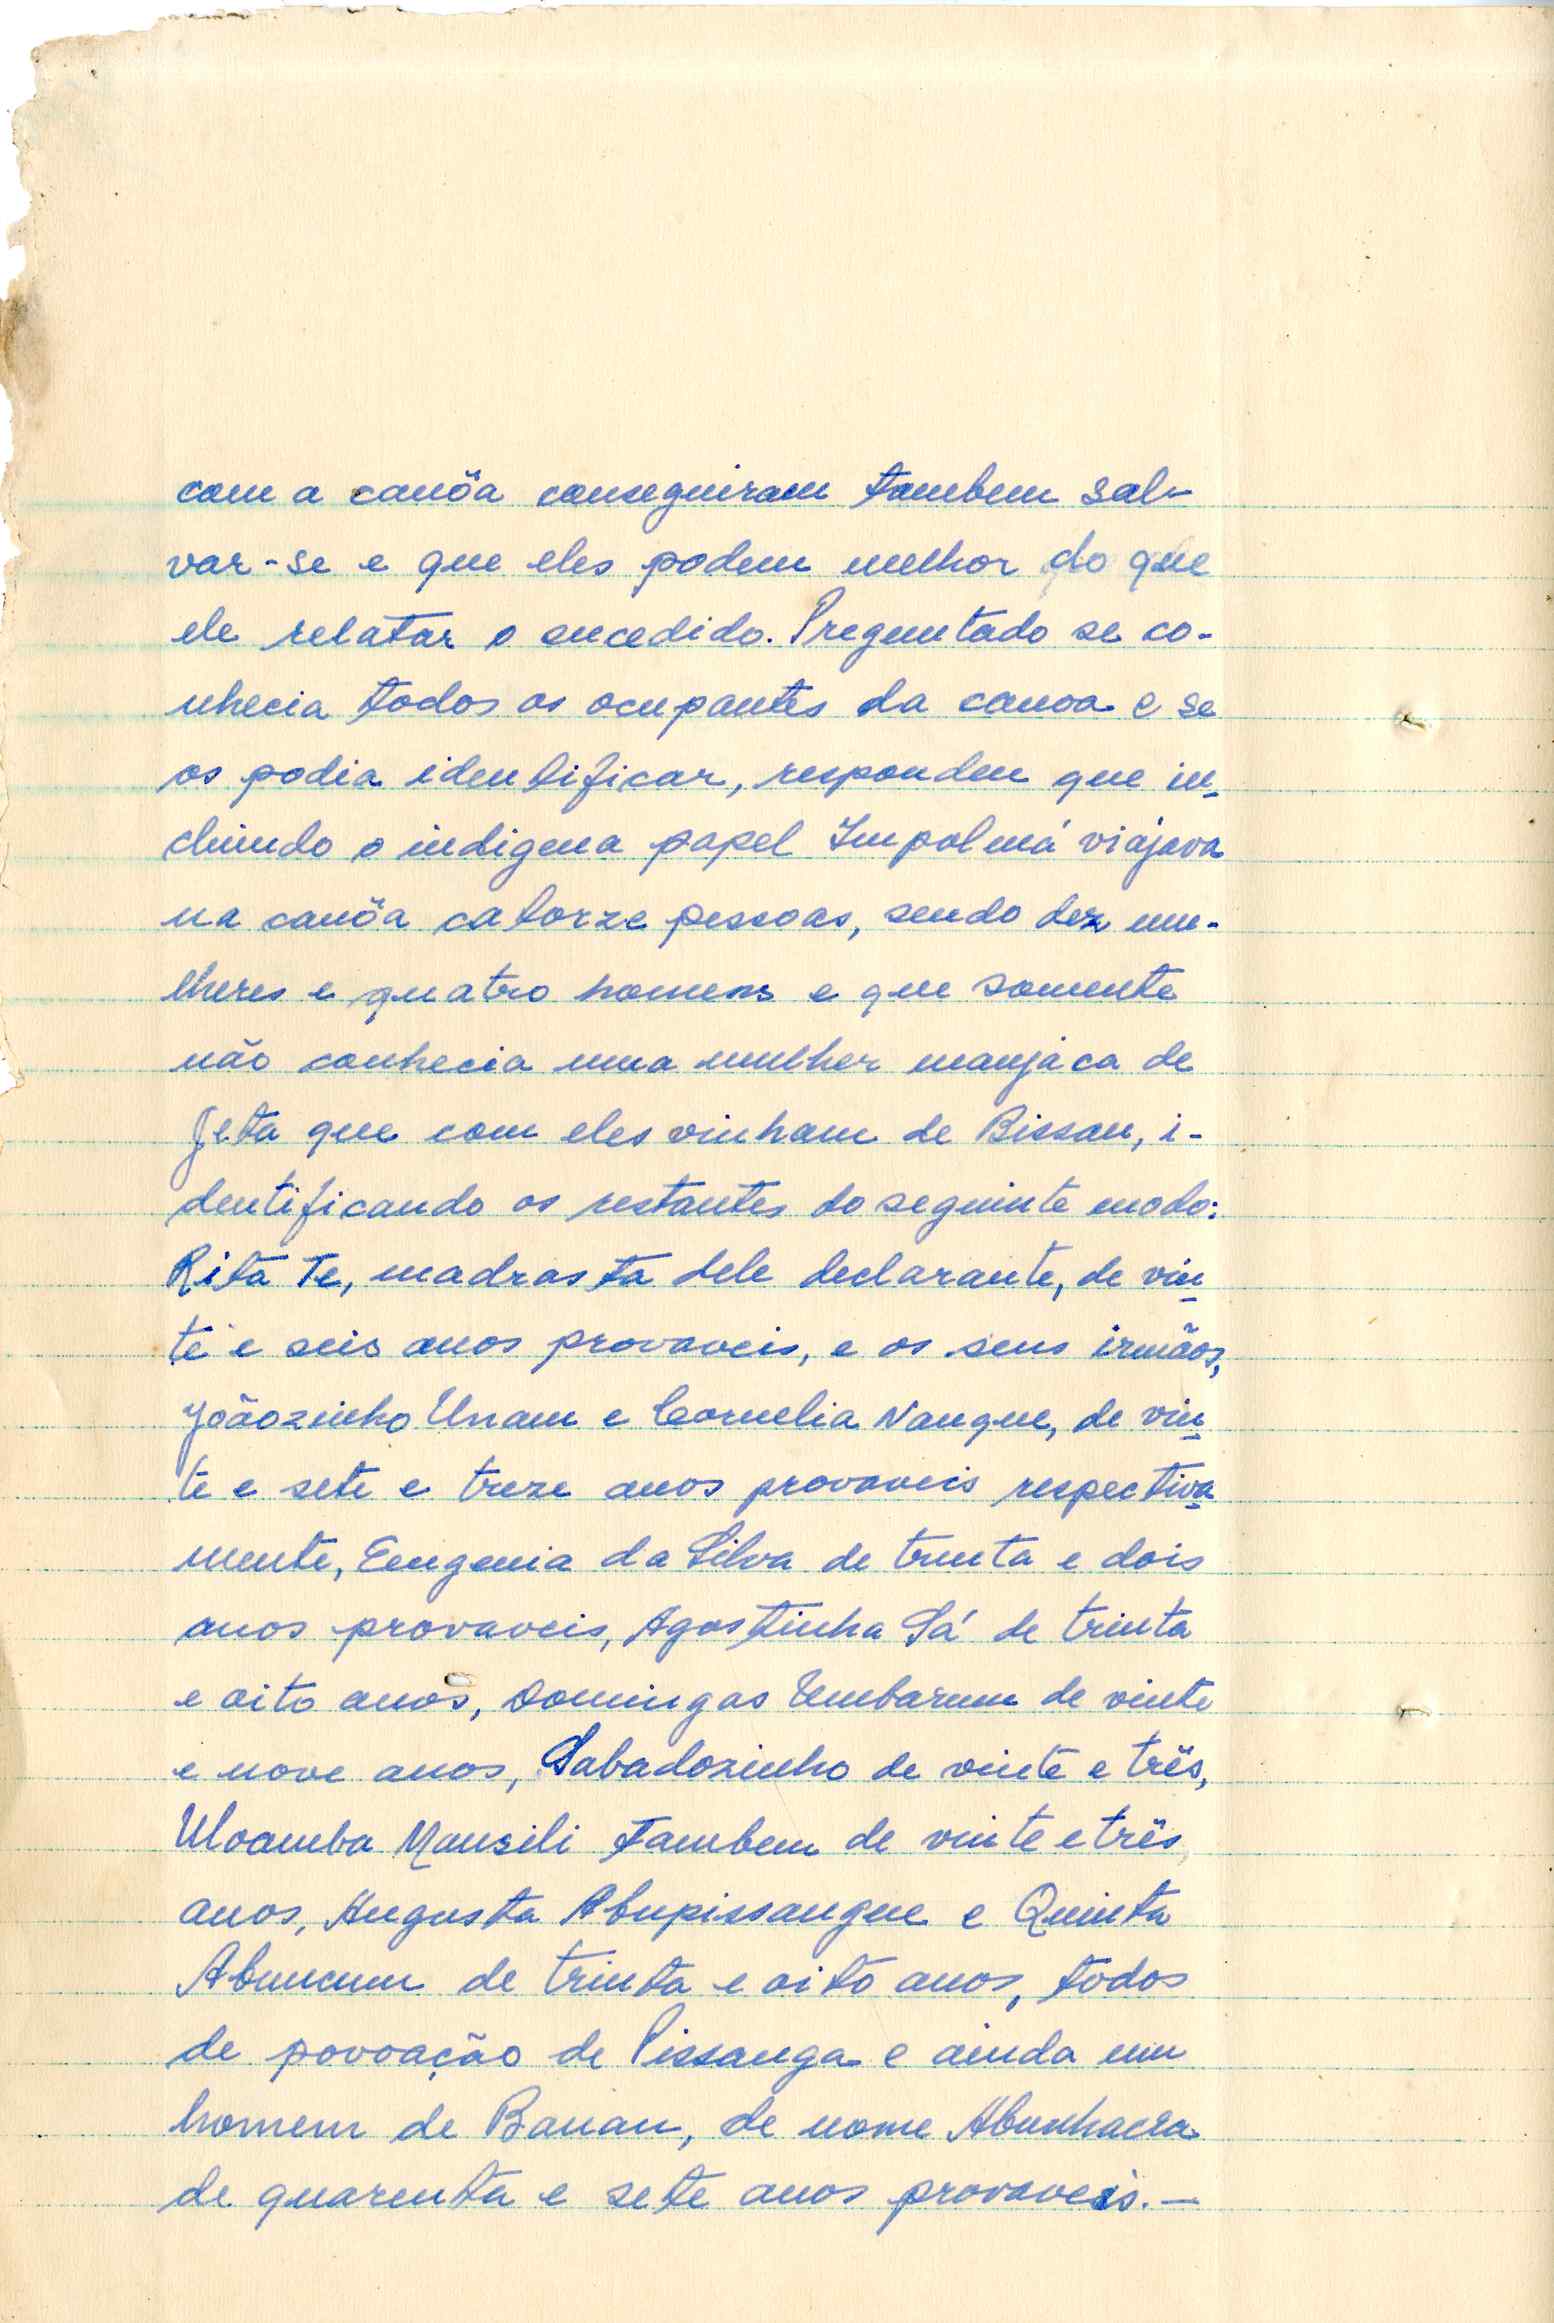 com a canôa conseguiram tambem sal-
var-se e que eles podem melhor do que
ele relatar o sucedido. Preguntado se co-
nhecia todos os ocupantes da canoa e se
os podia identificar, respondeu que in-
cluindo o indigena papel Impolmá viajava
na canôa catorze pessoas, sendo dez mu-
lheres e quatro homens e que somente
não conhecia uma mulher manjaca de
Jeta que com eles vinham de Bissau, i-
dentificando os restantes do seguinte modo:
Rita Te, madrasta dele declarante, de vin
te e seis anos provaveis, e os seus irmãos,
Joãozinho Unam e Cornelia Nangue, de vin
te e sete e treze anos provaveis respectiva
mente, Eugenia da Silva de trinta e dois
anos provaveis, Agostinha Sá de trinta
e oito anos, Domingas Umbarum de vinte
e nove anos, Sabadozinho de vinte e três,
Uloamba Mansili tambem de vinte e três
anos, Augusta Abupissangue e Quinta
Abumcum de trinta e oito anos, todos
de povoação de Pissanga e ainda um
homem de Banau, de nome
de quarenta e sete anos provaveis. —